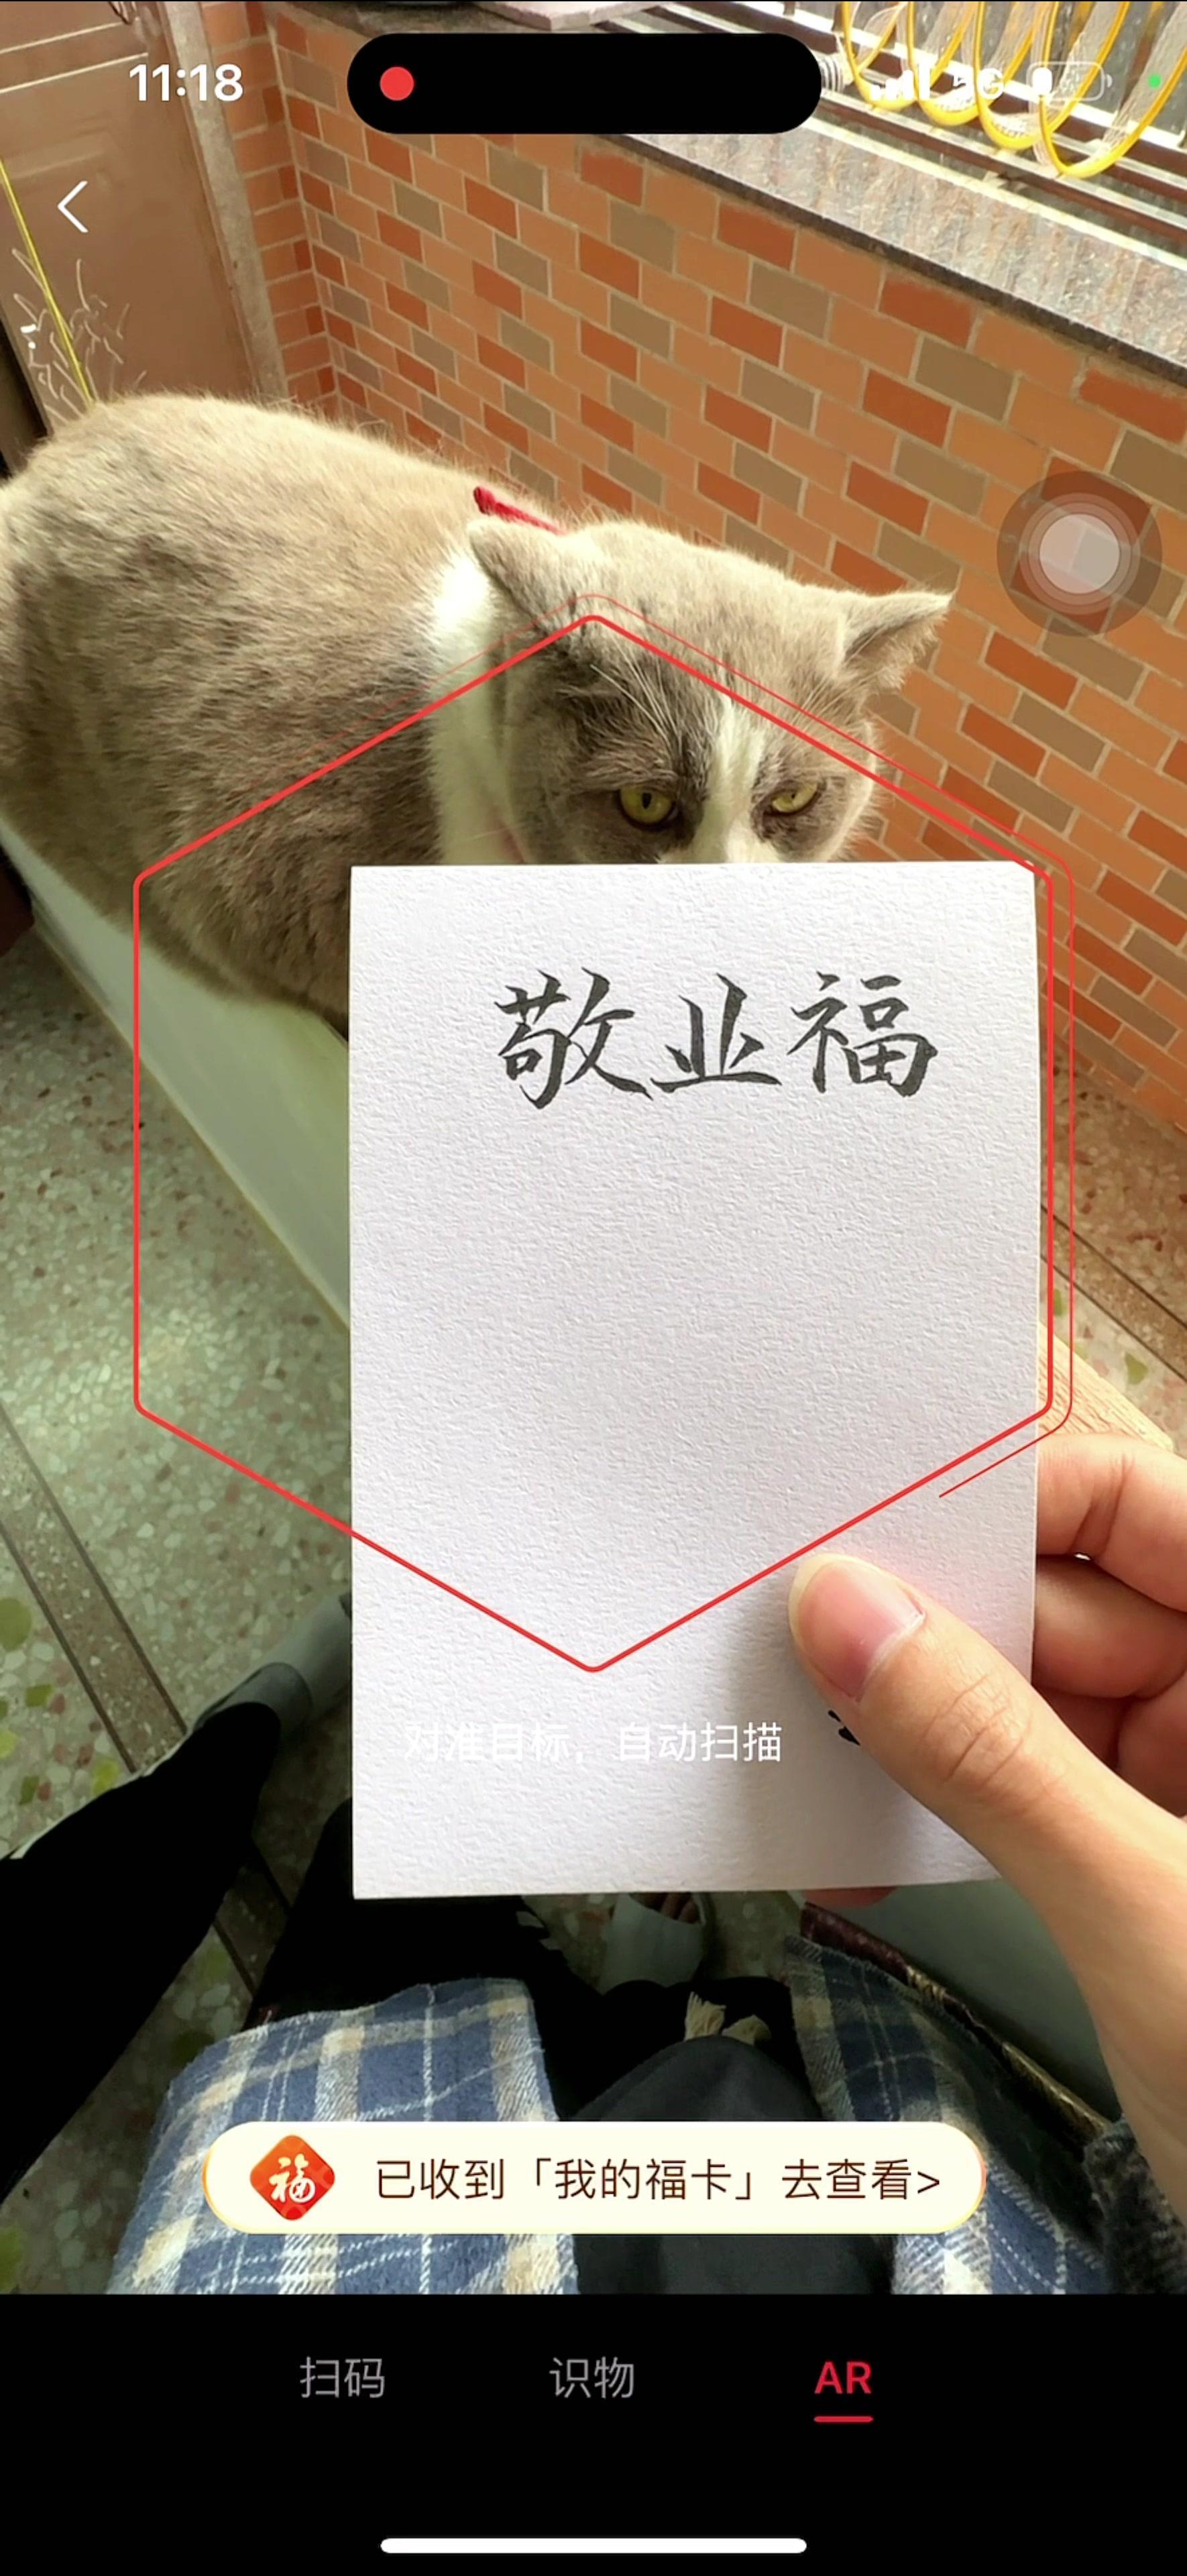 11:18
5G
敬业福
对准目标，自动扫描
福 已收到「我的福卡」去查看>
扫码 识物 AR